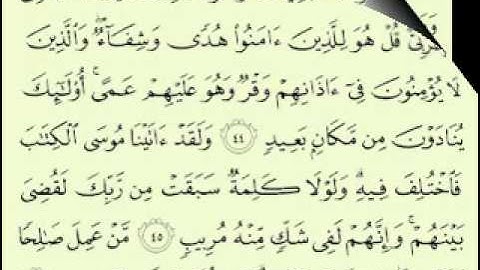 وَعَرَبِىٌّ قُلْ هُوَ لِلَّذِينَ ءَامَنُوا۟ هُدًى وَشِفَآءٌ ۖ وَٱلَّذِينَ
لَا يُؤْمِنُونَ فِىٓ ءَاذَانِهِمْ وَقْرٌ وَهُوَ عَلَيْهِمْ عَمًى ۚ أُو۟لَـٰٓئِكَ
يُنَادَوْنَ مِن مَّكَانٍۭ بَعِيدٍ ٤٤ وَلَقَدْ ءَاتَيْنَا مُوسَى ٱلْكِتَـٰبَ
فَٱخْتُلِفَ فِيهِ ۗ وَلَوْلَا كَلِمَةٌ سَبَقَتْ مِن رَّبِّكَ لَقُضِىَ
بَيْنَهُمْ ۚ وَإِنَّهُمْ لَفِى شَكٍّ مِّنْهُ مُرِيبٍ ٤٥ مَّنْ عَمِلَ صَـٰلِحًا